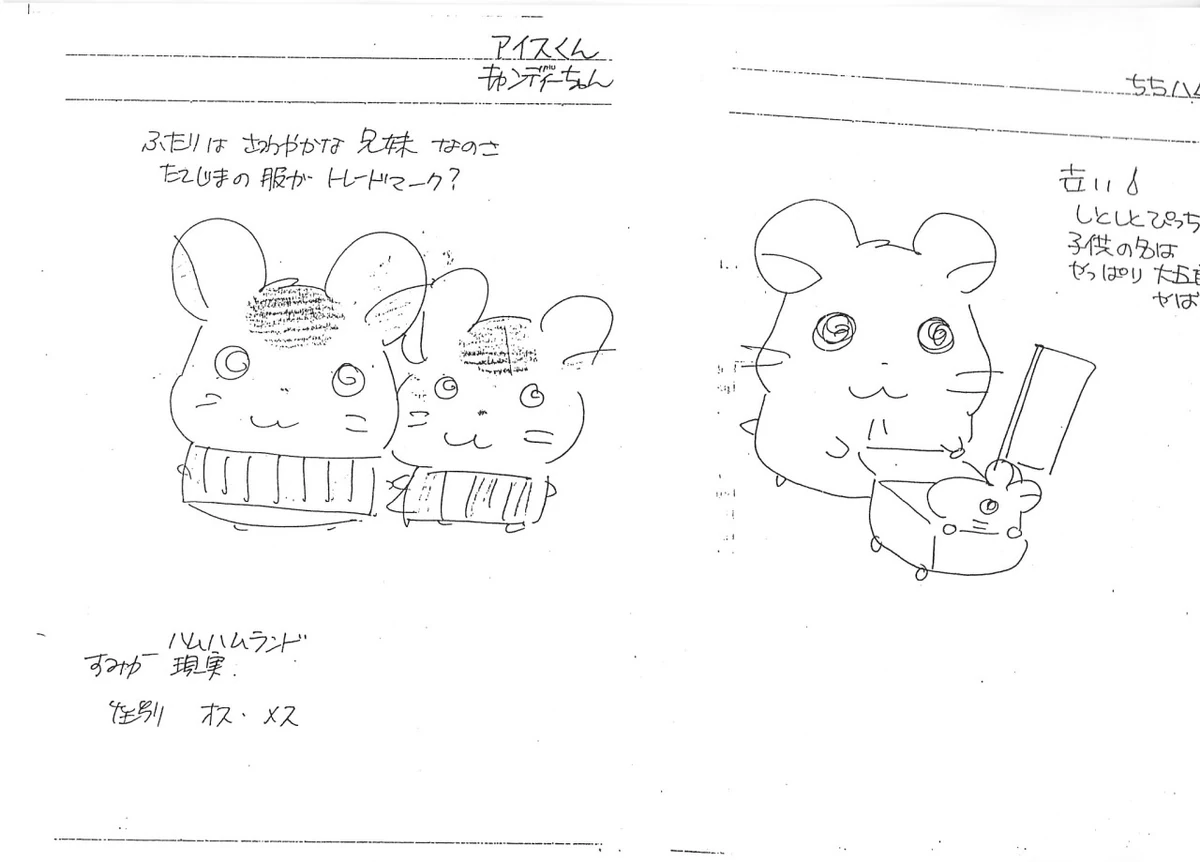 アイスくん
キャンディーちゃん
ふたりは さわやかな 兄妹 なのさ
たてじまの 服が トレードマーク？
ハムハムランド
すみか 現実
性別 オス・メス
ちちハム
古い
しとしとぴっち
子供の名は
やっぱり 大五
やっぱ